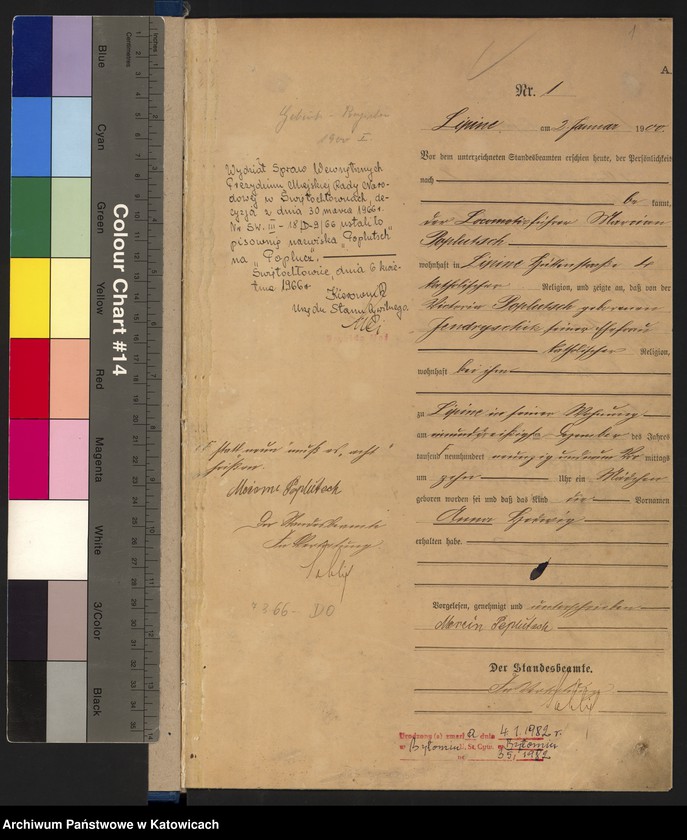 Blue
Cyan
Green
Yellow
Red
Magenta
White
3/Color
Black
Colour Chart #14
Centimetres
Inches
1
A.
Nr. 1
Lipine am 2 Januar 1900.
Vor dem unterzeichneten Standesbeamten erschien heute, der Persönlichkeit
nach
be kannt,
der Locomotivführer Marcin
Poplutsch
wohnhaft in Lipine
katholischer Religion, und zeigte an, daß von der
Victoria Poplutsch geborenen
seiner Ehefrau
katholischer Religion,
wohnhaft bei ihm
zu Lipine in seiner Wohnung
am Dezember des Jahres
tausend neunhundert neunzig und neun Vor mittags
um zehn Uhr ein Mädchen
geboren worden sei und daß das Kind die Vornamen
Anna Hedwig
erhalten habe.
Vorgelesen, genehmigt und unterschrieben
Marcin Poplutsch
Der Standesbeamte.
In Vertretung
Wydział Spraw Wewnętrznych
Prezydium Miejskiej Rady Naro-
dowej w Świętochłowicach, de-
cyzją z dnia 30 marca 1966r.
Nr Sw. III - 18/D-9/66 ustalił
pisownię nazwiska "Poplutsch"
na "Poplucz".
Świętochłowice, dnia 6 kwie-
tnia 1966r
Kierownik
Urzędu Stanu Cywilnego.
statt "neun" muß es "acht"
heißen
Poplutsch
Der Standesbeamte
In Vertretung
66 - DO
zmarł a dnia 4.1.1982 r.
w Bytomiu
Bytomiu
1982
Archiwum Państwowe w Katowicach